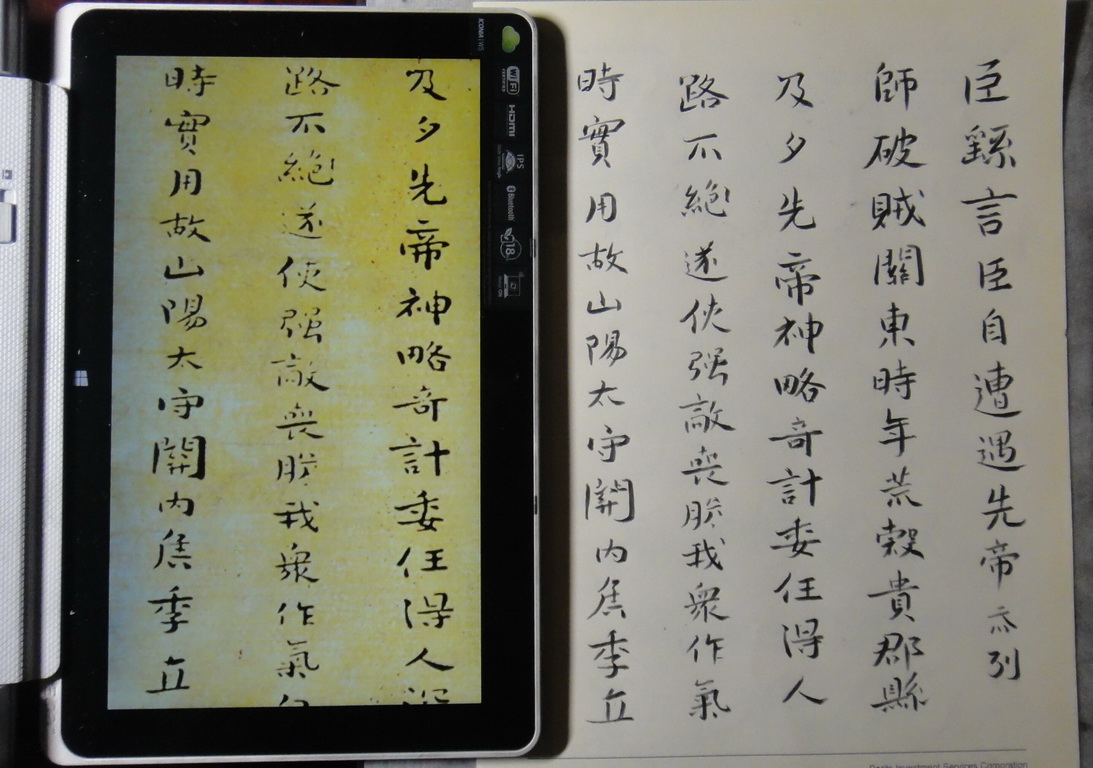 臣繇言臣自遭遇先帝忝列
師破賊關東時年荒穀貴郡縣
及夕先帝神略奇計委任得人
路不絕遂使强敵喪膽我衆作氣
時實用故山陽太守關內侯季直
及夕先帝神略奇計委任得人深
路不絕遂使强敵喪膽我衆作氣旬
時實用故山陽太守關內侯季直
ICONIA W5
WiFi
CERTIFIED
HDMI
IPS
Bluetooth
18
Investment Services Corporation